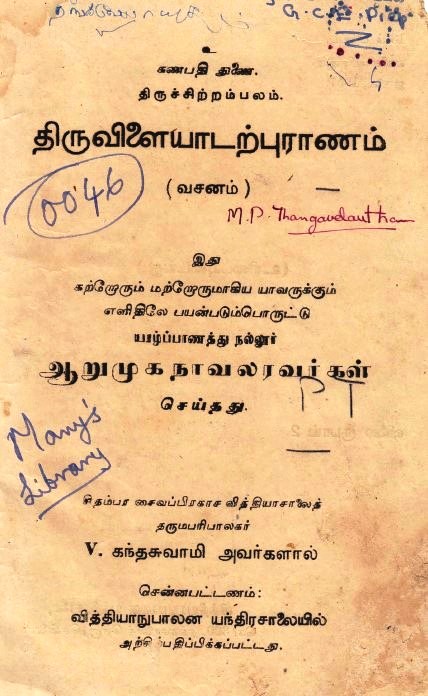 G.C.E. P.T
உ
கணபதி துணை.
திருச்சிற்றம்பலம்.
திருவிளையாடற்புராணம்
0046
(வசனம்)
M. P. Thangavelautham
இது
கற்றோரும் மற்றோருமாகிய யாவருக்கும்
எளிதிலே பயன்படும்பொருட்டு
யாழ்ப்பாணத்து நல்லூர்
ஆறுமுகநாவலரவர்கள்
P. T
செய்தது.
Many's
Library
சிதம்பர சைவப்பிரகாச வித்தியாசாலைத்
தருமபரிபாலகர்
V. கந்தசுவாமி அவர்களால்
சென்னபட்டணம்:
வித்தியாநுபாலன யந்திரசாலையில்
அச்சிற்பதிப்பிக்கப்பட்டது.